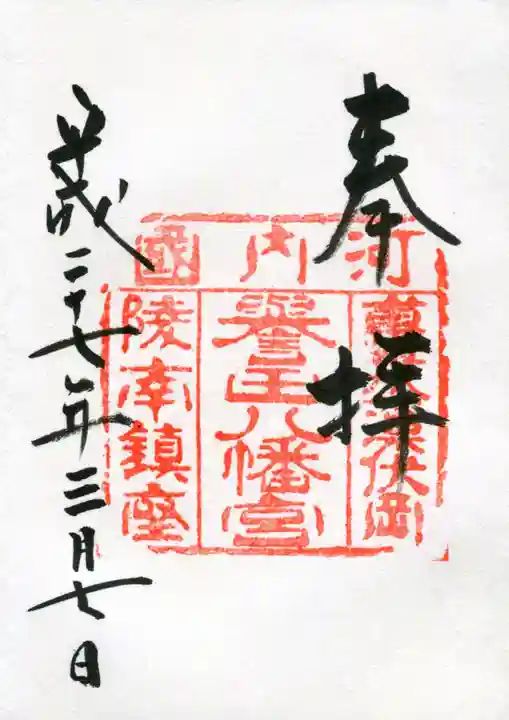 奉拝
河内國
伏岡
譽田八幡宮
陵南鎮座
平成二十七年三月七日